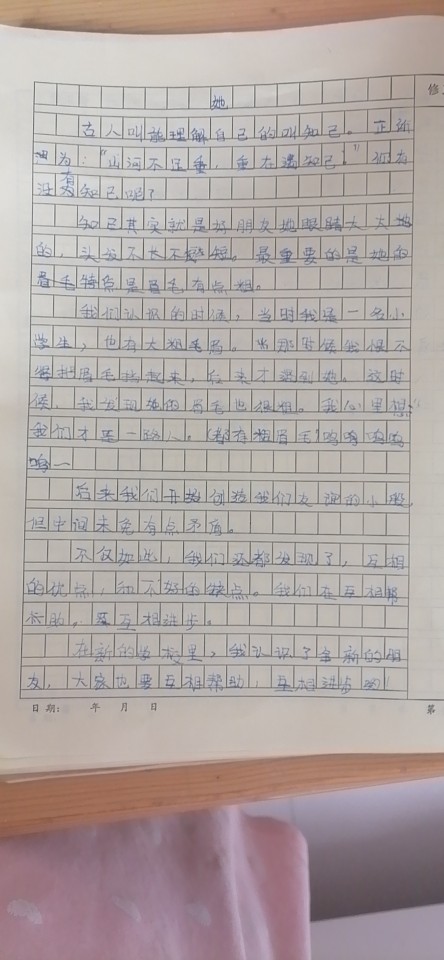 她
古人叫能理解自己的叫知己。正所
谓为："山河不足重，重在遇知己！"你有
没有知己呢？
知己其实就是好朋友她眼睛大大地
的，头发不长不短。最重要的是她的
眉毛特点是眉毛有点粗。
我们认识的时候，当时我是一名小
学生，也有大粗毛眉。当那时候我恨不
得把眉毛挡起来，后来才遇到她。这时
候，我发现她的眉毛也很粗。我心里想"
我们才是一路人。（都有粗眉毛）呜呜呜呜
呜一
后来我们开始创造我们友谊的小船，
但中间未免有点矛盾。
不仅如此，我们还都发现了，互相
的优点，和不好的缺点。我们在互相帮
助，互相进步。
在新的学校里，我认识了全新的朋
友，大家也要互相帮助，互相进步哟！
日期： 年 月 日
第
修